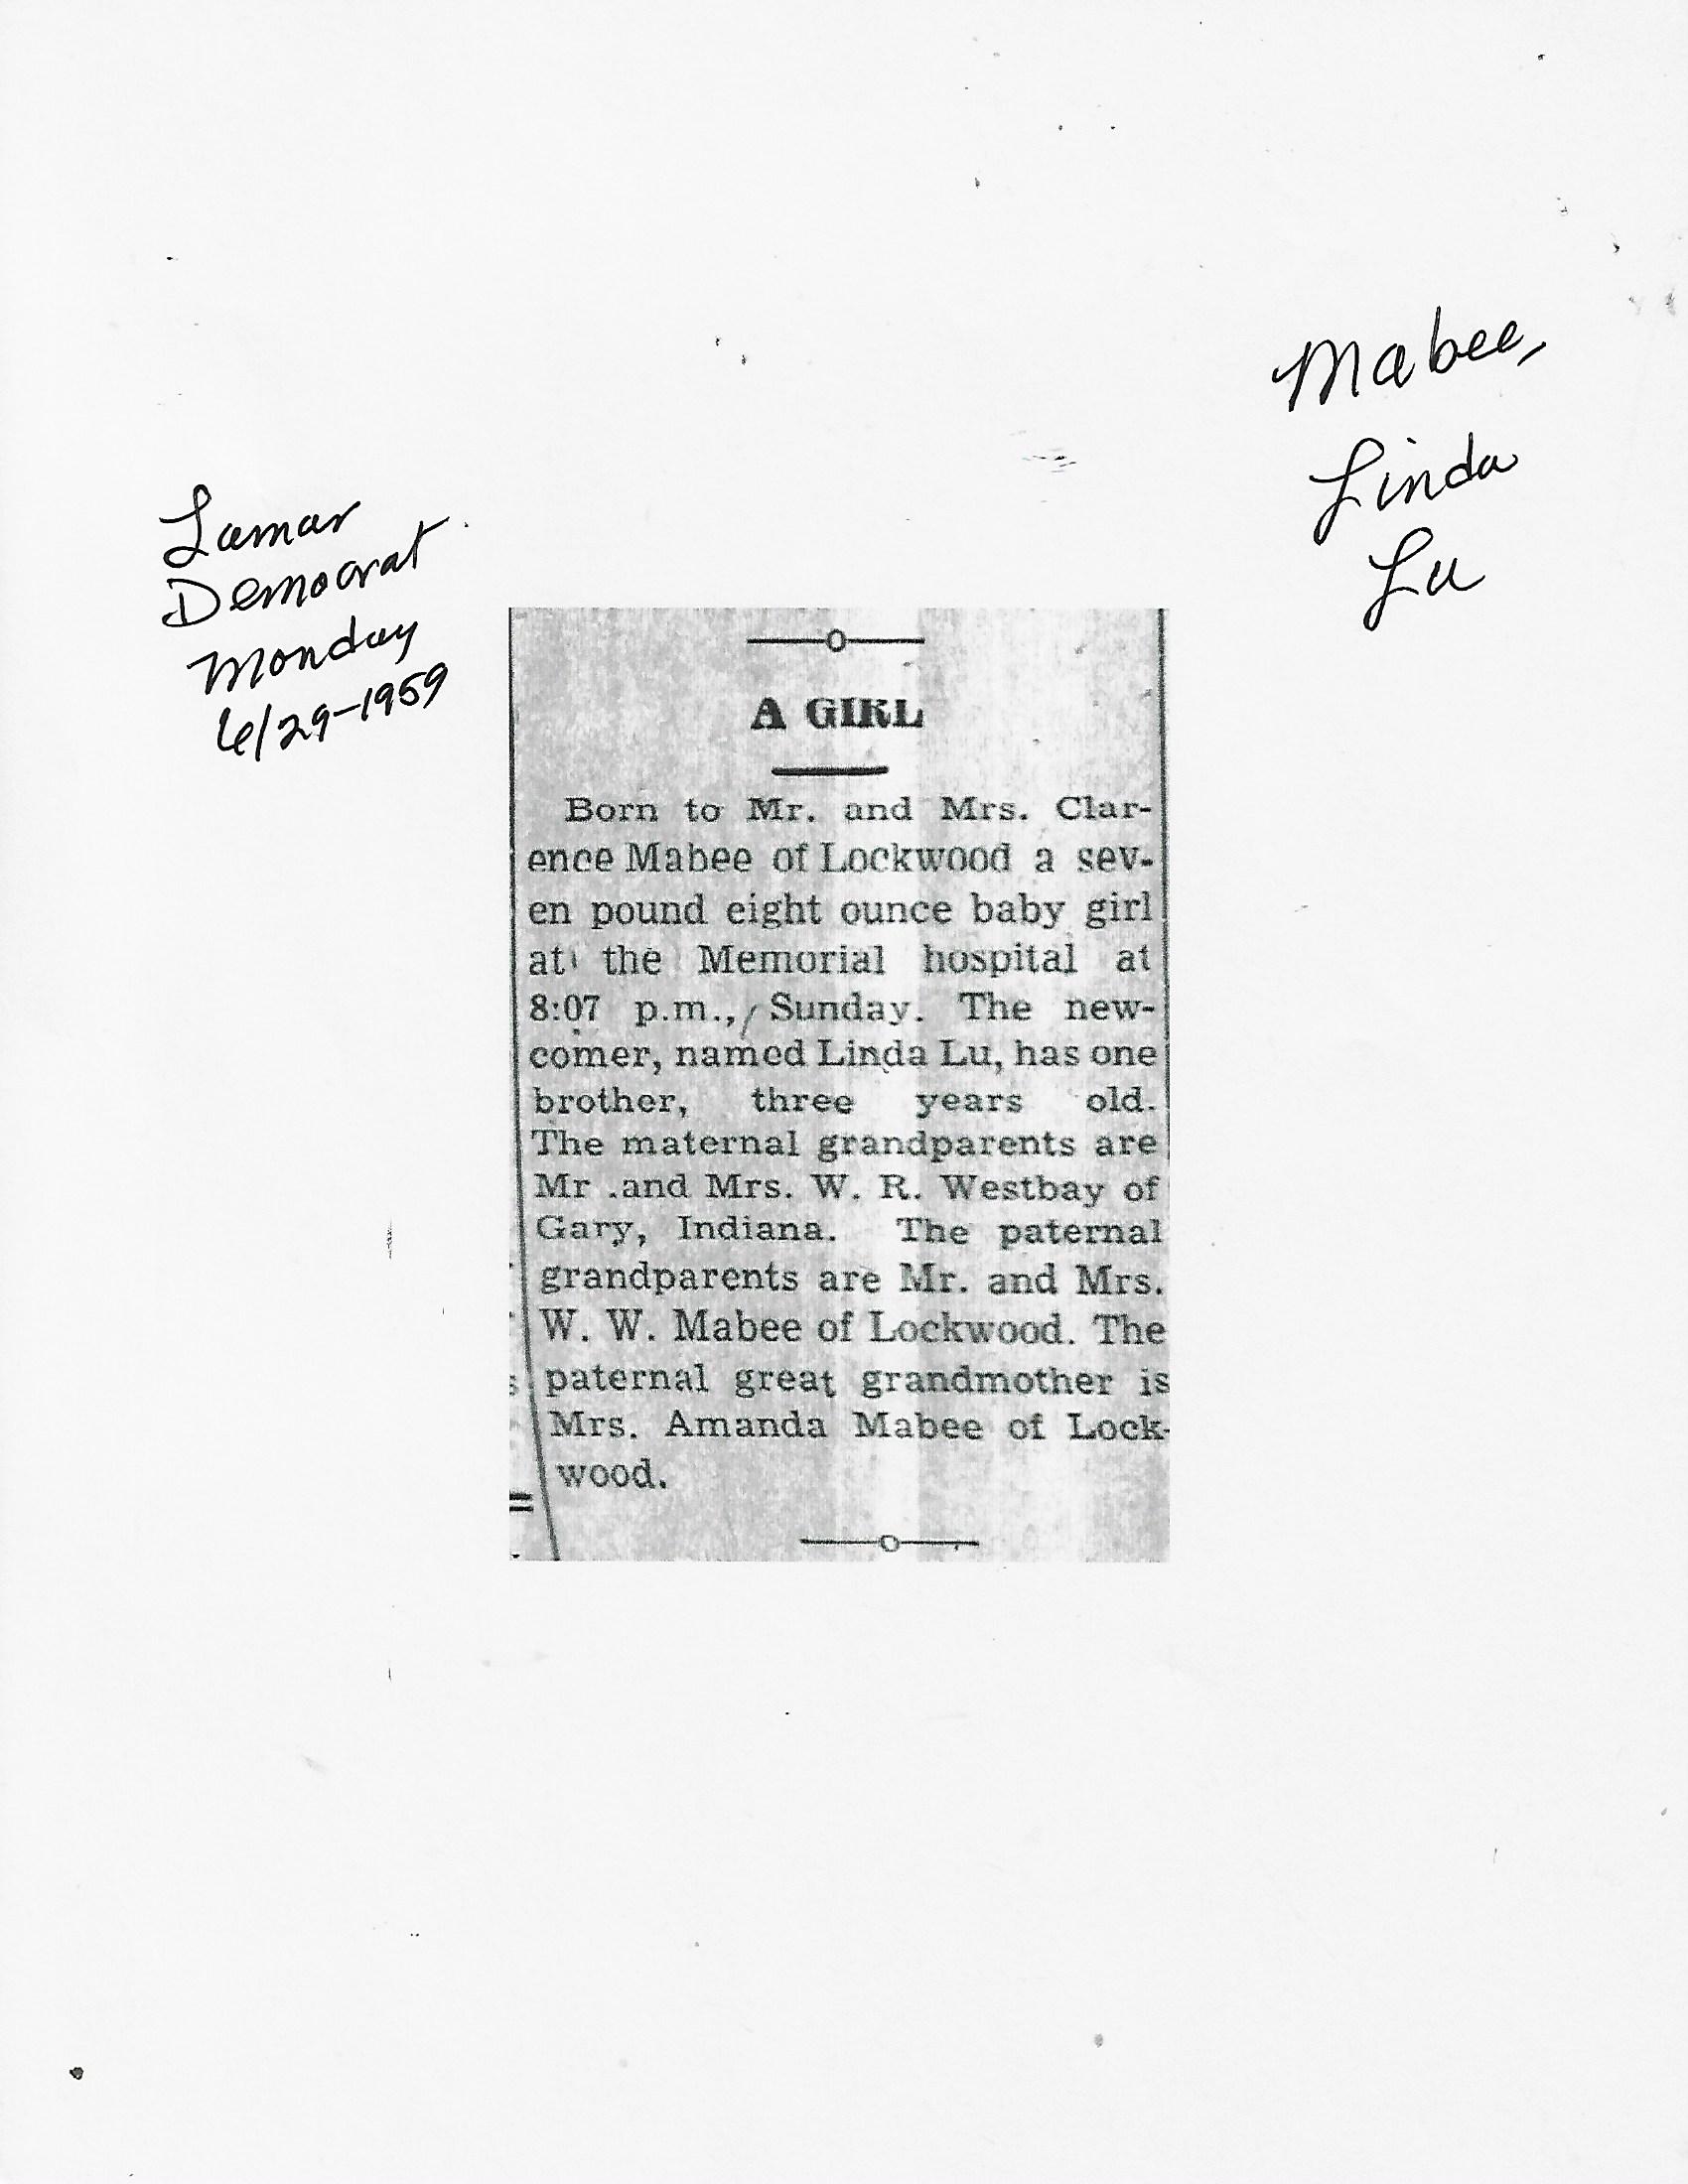 Mabee,
Linda
Lu
Lamar
Democrat
Monday
6/29-1959
A GIRL
Born to Mr. and Mrs. Clar-
ence Mabee of Lockwood a sev-
en pound eight ounce baby girl
at the Memorial hospital at
8:07 p.m., Sunday. The new-
comer, named Linda Lu, has one
brother, three years old.
The maternal grandparents are
Mr .and Mrs. W. R. Westbay of
Gary, Indiana. The paternal
grandparents are Mr. and Mrs.
W. W. Mabee of Lockwood. The
paternal great grandmother is
Mrs. Amanda Mabee of Lock-
wood.